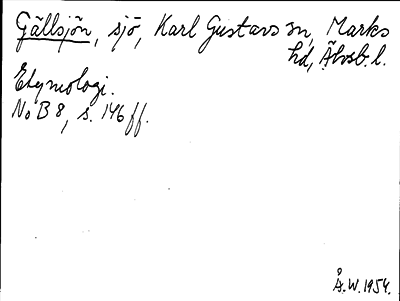 Gällsjön, sjö, Karl Gustavs sn, Marks
hd, Älvsb. l.
Etymologi.
No B 8, s. 146 ff.
Å.W. 1954.